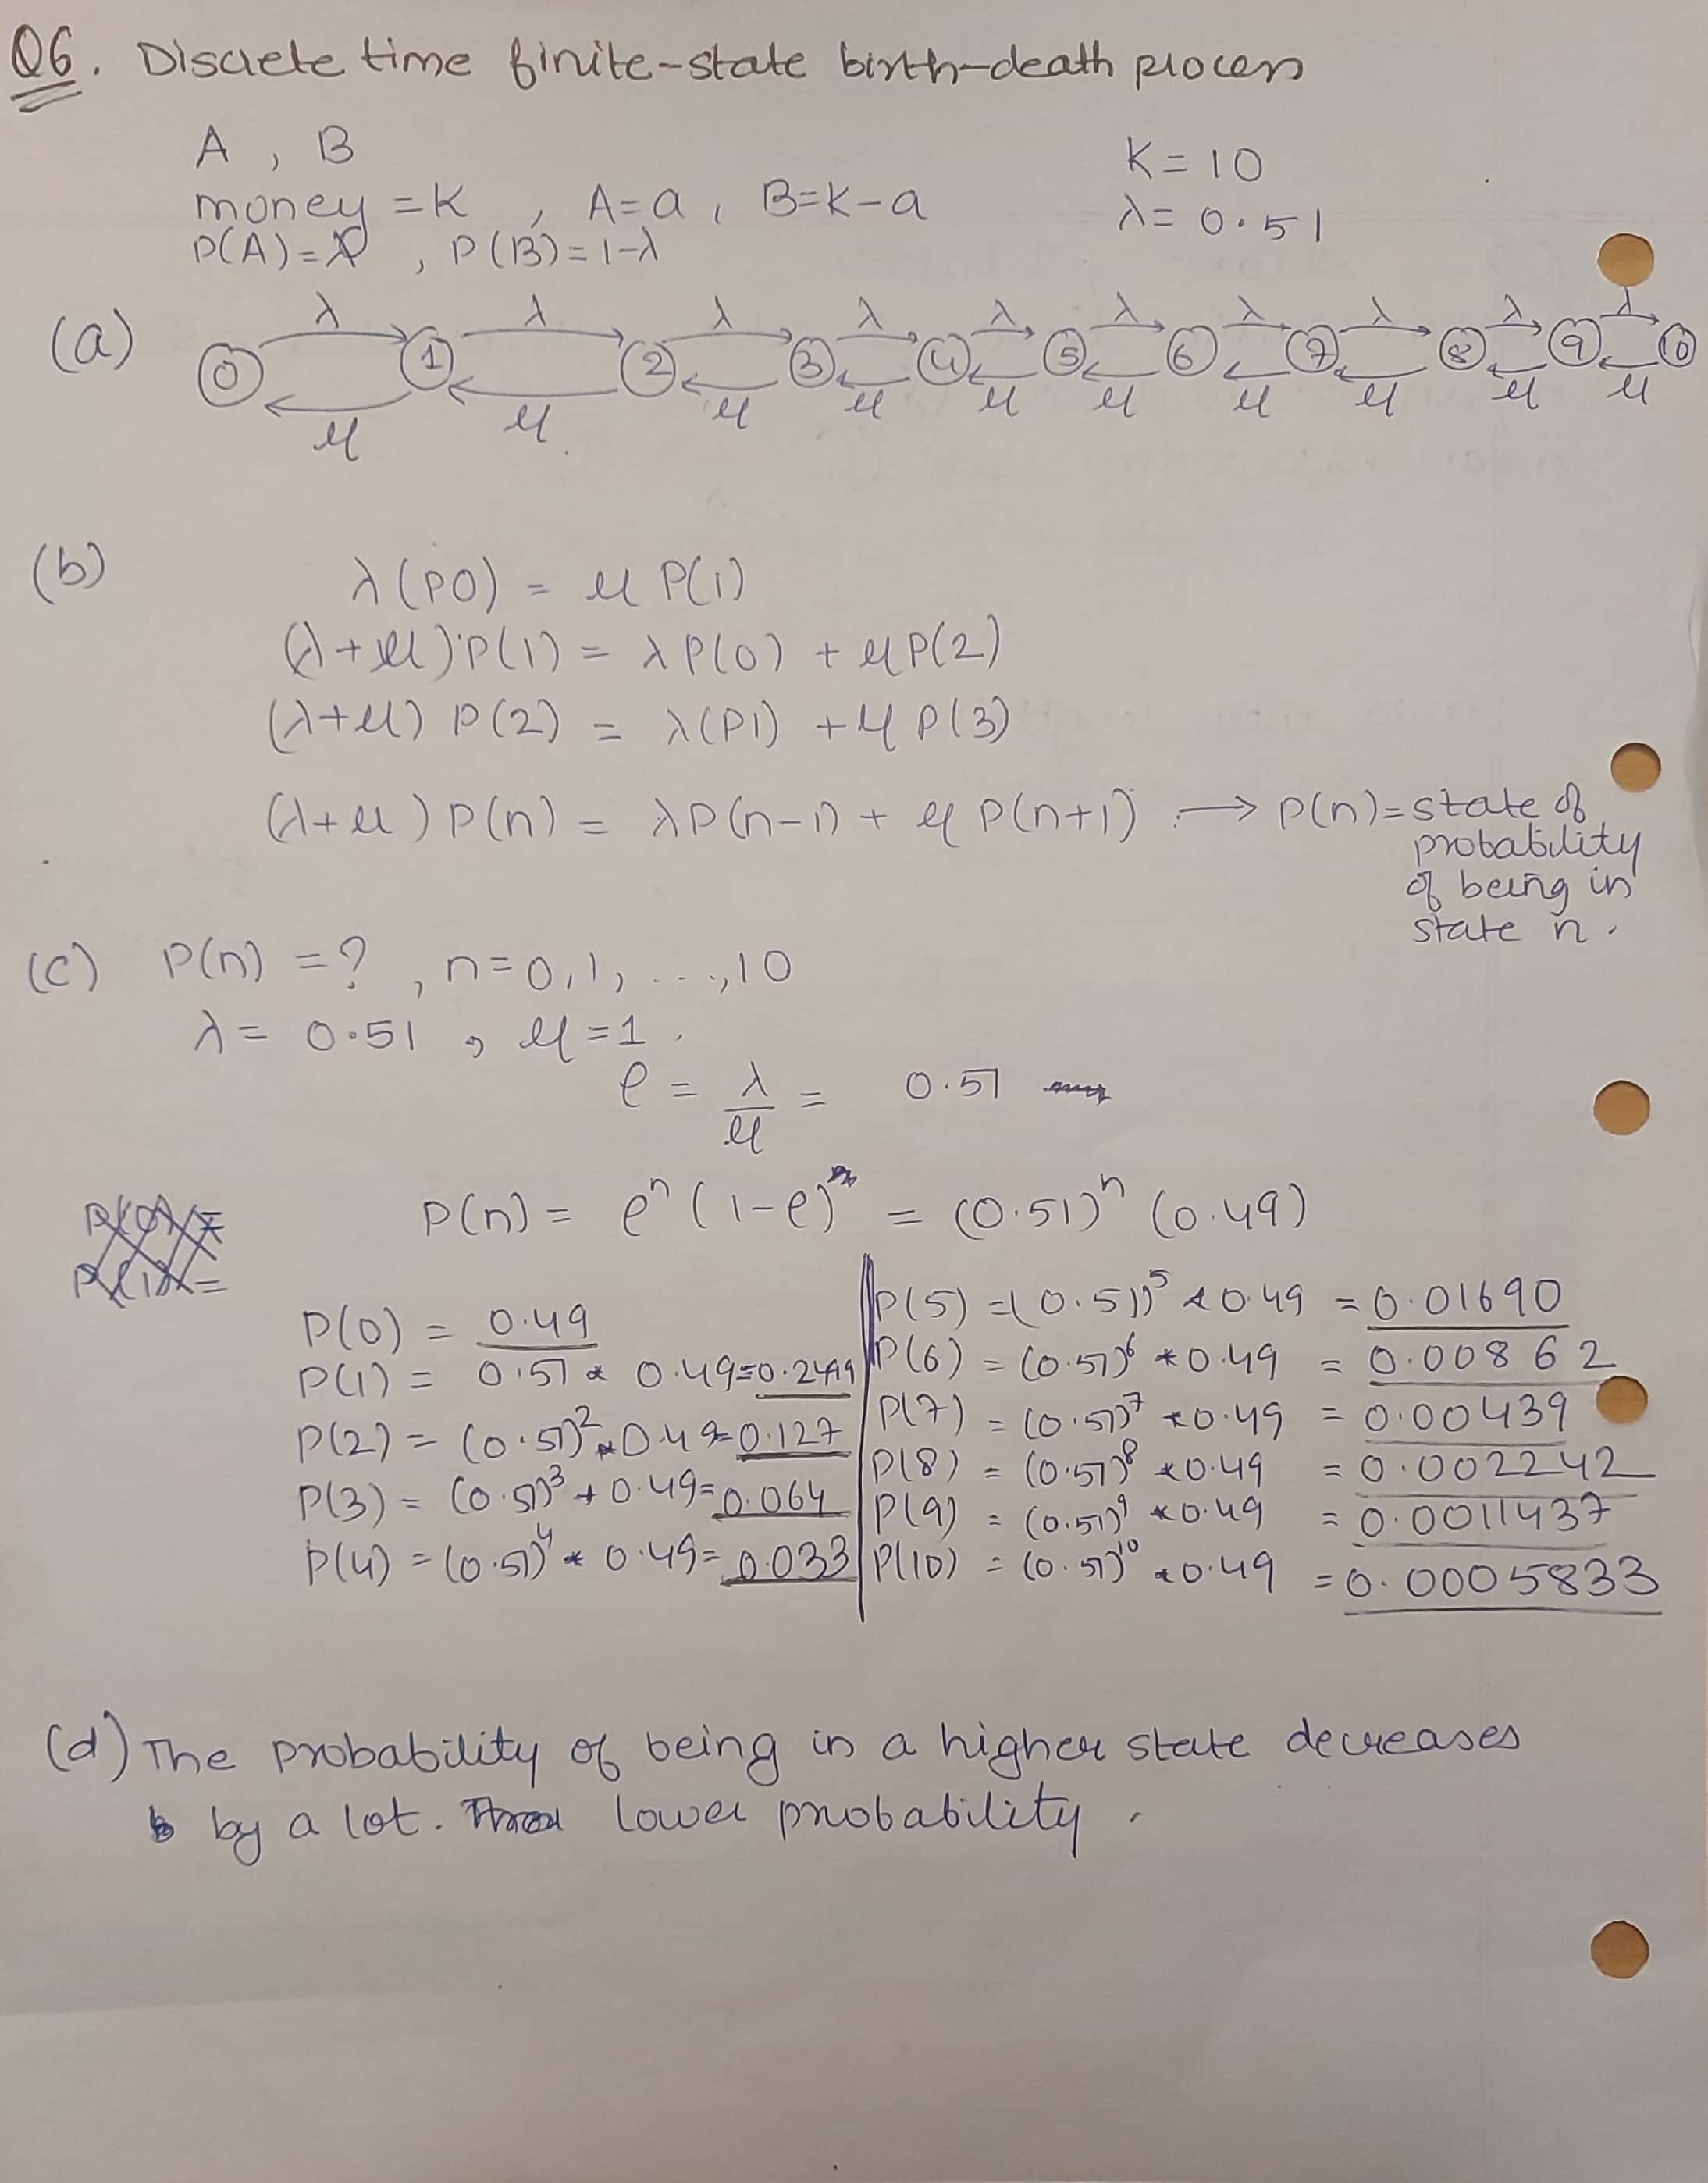 Q6. Discrete time finite-state birth-death process
A , B
K = 10
money = K , A = a , B = K-a
λ = 0.51
P(A) = , P(B) = 1-λ
(a)
λ λ λ λ λ λ λ λ λ λ
0 1 2 3 4 5 6 7 8 9 10
μ μ μ μ μ μ μ μ μ μ
(b) λ(P0) = μ P(1)
(λ+μ) P(1) = λ P(0) + μ P(2)
(λ+μ) P(2) = λ(P1) + μ P(3)
(λ+μ) P(n) = λP(n-1) + μ P(n+1) → P(n) = state of
probability
of being in
state n.
(c) P(n) = ? , n = 0, 1, ...., 10
λ = 0.51 , μ = 1 .
ρ = λ/μ = 0.51
P(n) = ρⁿ (1-ρ) = (0.51)ⁿ (0.49)
P(0) =
P(1) =
P(0) = 0.49
P(1) = 0.51 * 0.49 = 0.2499
P(2) = (0.51)² * 0.49 = 0.127
P(3) = (0.51)³ * 0.49 = 0.064
P(4) = (0.51)⁴ * 0.49 = 0.033
P(5) = (0.51)⁵ * 0.49 = 0.01690
P(6) = (0.51)⁶ * 0.49 = 0.00862
P(7) = (0.51)⁷ * 0.49 = 0.00439
P(8) = (0.51)⁸ * 0.49 = 0.002242
P(9) = (0.51)⁹ * 0.49 = 0.0011437
P(10) = (0.51)¹⁰ * 0.49 = 0.0005833
(d) The probability of being in a higher state decreases
by a lot. lower probability .